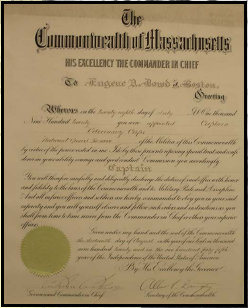 The
Commonwealth of Massachusetts
HIS EXCELLENCY THE COMMANDER IN CHIEF
To Eugene A. Dowd of Boston,
Greeting
Whereas on the twenty fifth day of July A.D. one thousand
Nine Hundred twenty you were appointed Captain
Veterinary Corps
of the Militia of this Commonwealth
by virtue of the power vested in me I do by these presents reposing special trust and confi
dence in your ability courage and good conduct Commission you accordingly
Captain
You will therefore carefully and diligently discharge the duties of said office with honor
and fidelity to the laws of the Commonwealth and its Military Rules and Discipline
And all inferior officers and soldiers are hereby commanded to obey you in your said
capacity and you will yourself observe and follow such orders and instructions as you
shall from time to time receive from the Commander in Chief or others your superior
officers
Given under my hand and the seal of the Commonwealth
the day of August in the year of our Lord one thousand
nine hundred twenty and in the one hundred forty fifth
year of the Independence of the United States of America
By His Excellency the Governor
Governor and Commander in Chief
Secretary of the Commonwealth